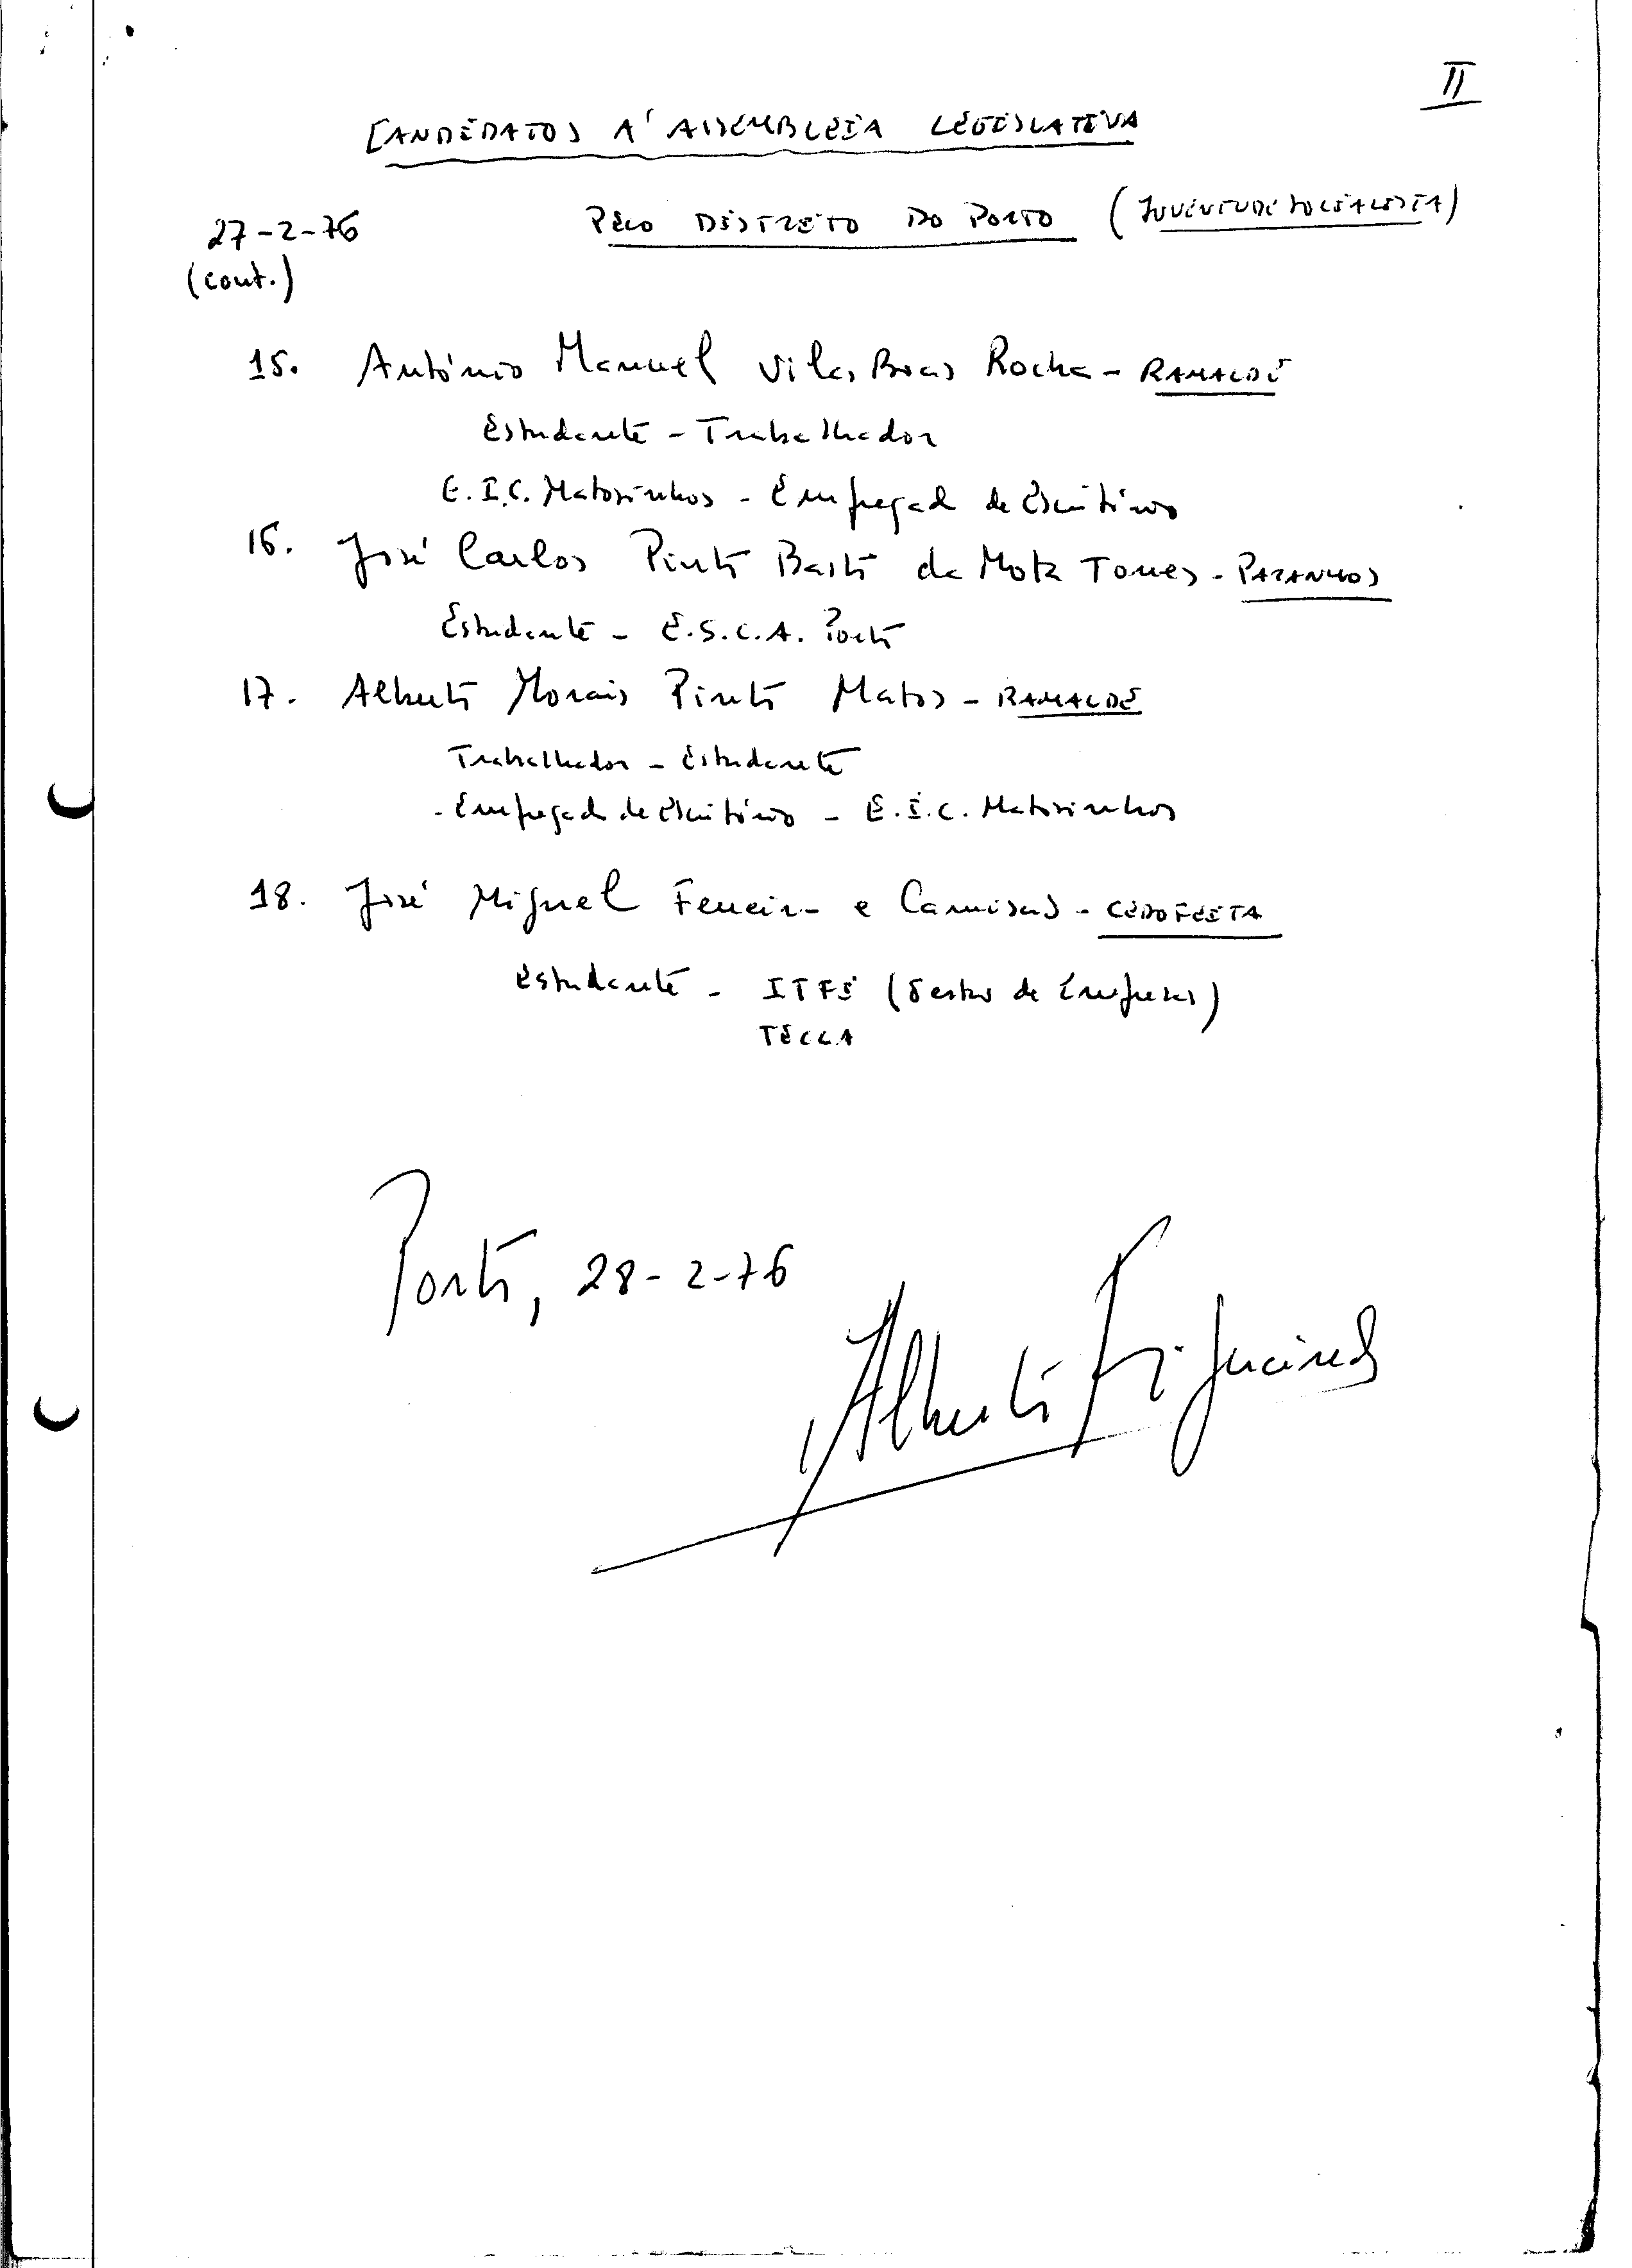 II
CANDIDATOS A' ASSEMBLEIA LEGISLATIVA
27-2-76 PELO DISTRITO DO PORTO (JUVENTUDE SOCIALISTA)
(cont.)
15. António Manuel Vilas Boas Rocha - RAMALDE
Estudante - Trabalhador
E.I.C. Matosinhos - Empregado de Escritório
16. José Carlos Pinto Basto da Mota Torres - PARANHOS
Estudante - E.S.C.A. Porto
17. Alberto Morais Pinto Matos - RAMALDE
Trabalhador - Estudante
- Empregado de Escritório - E.I.C. Matosinhos
18. José Miguel Ferreira e - CEDOFEITA
Estudante - (Gestão de Empresas)
TECLA
Porto, 28-2-76
Alberto Figueiredo